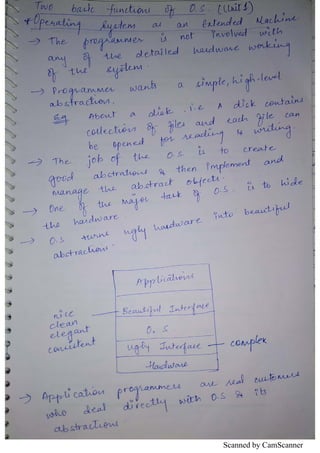 Two basic functions of O.S. (Unit 1)
* Operating System as an Extended Machine
→ The programmer is not Involved with
any of the detailed hardware working
of the system.
→ Programmer wants a simple, high-level
abstraction.
Eg About a disk. i.e A disk contains
collections of files and each file can
be opened for reading & writing.
→ The job of the O.S is to create
good abstrations & then Implement and
manage the abstract objects.
→ One of the major task of O.S. is to hide
the hardware.
→ O.S turns ugly hardware into beautiful
abstractions.
Applications
Beautiful Interface
O. S
Ugly Interface
Hardware
nice
clean
elegant
consistent
complex
→ Application programmers are real customers
who deal directly with O.S & its
abstractions
Scanned by CamScanner